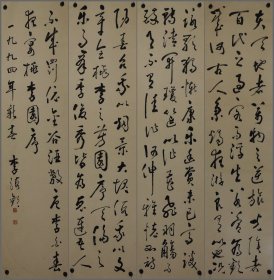 夫天地者萬物之逆旅光陰者
百代之過客而浮生若夢為歡
幾何古人秉燭夜遊良有以也況
詠歌獨慚康樂幽賞未已高談
轉清開瓊筵以坐花飛羽觴而
醉月不有佳作何伸雅懷如詩
陽春召我以煙景大塊假我以文
章會桃李之芳園序天倫之
樂事群季俊秀皆為惠連吾人
不成罰依金谷酒數 李白春
夜宴桃李園序
一九九四年新春 李